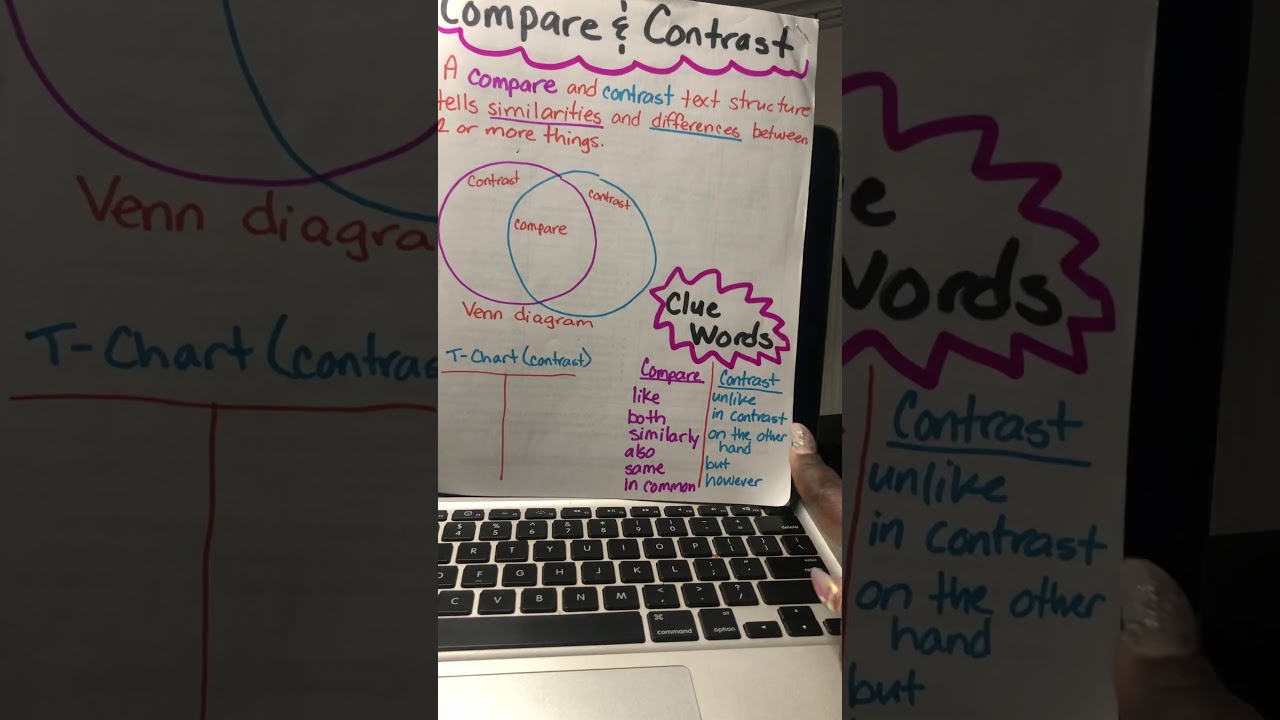 Compare & Contrast
A compare and contrast text structure
tells similarities and differences between
2 or more things.
Contrast
contrast
compare
Venn diagram
T-Chart (contrast)
Clue
Words
Compare
like
both
similarly
also
same
in common
Contrast
unlike
in contrast
on the other
hand
but
however
delete
command
option
Venn diagra
T-Chart (contras
Words
Contrast
unlike
in contrast
on the other
hand
but